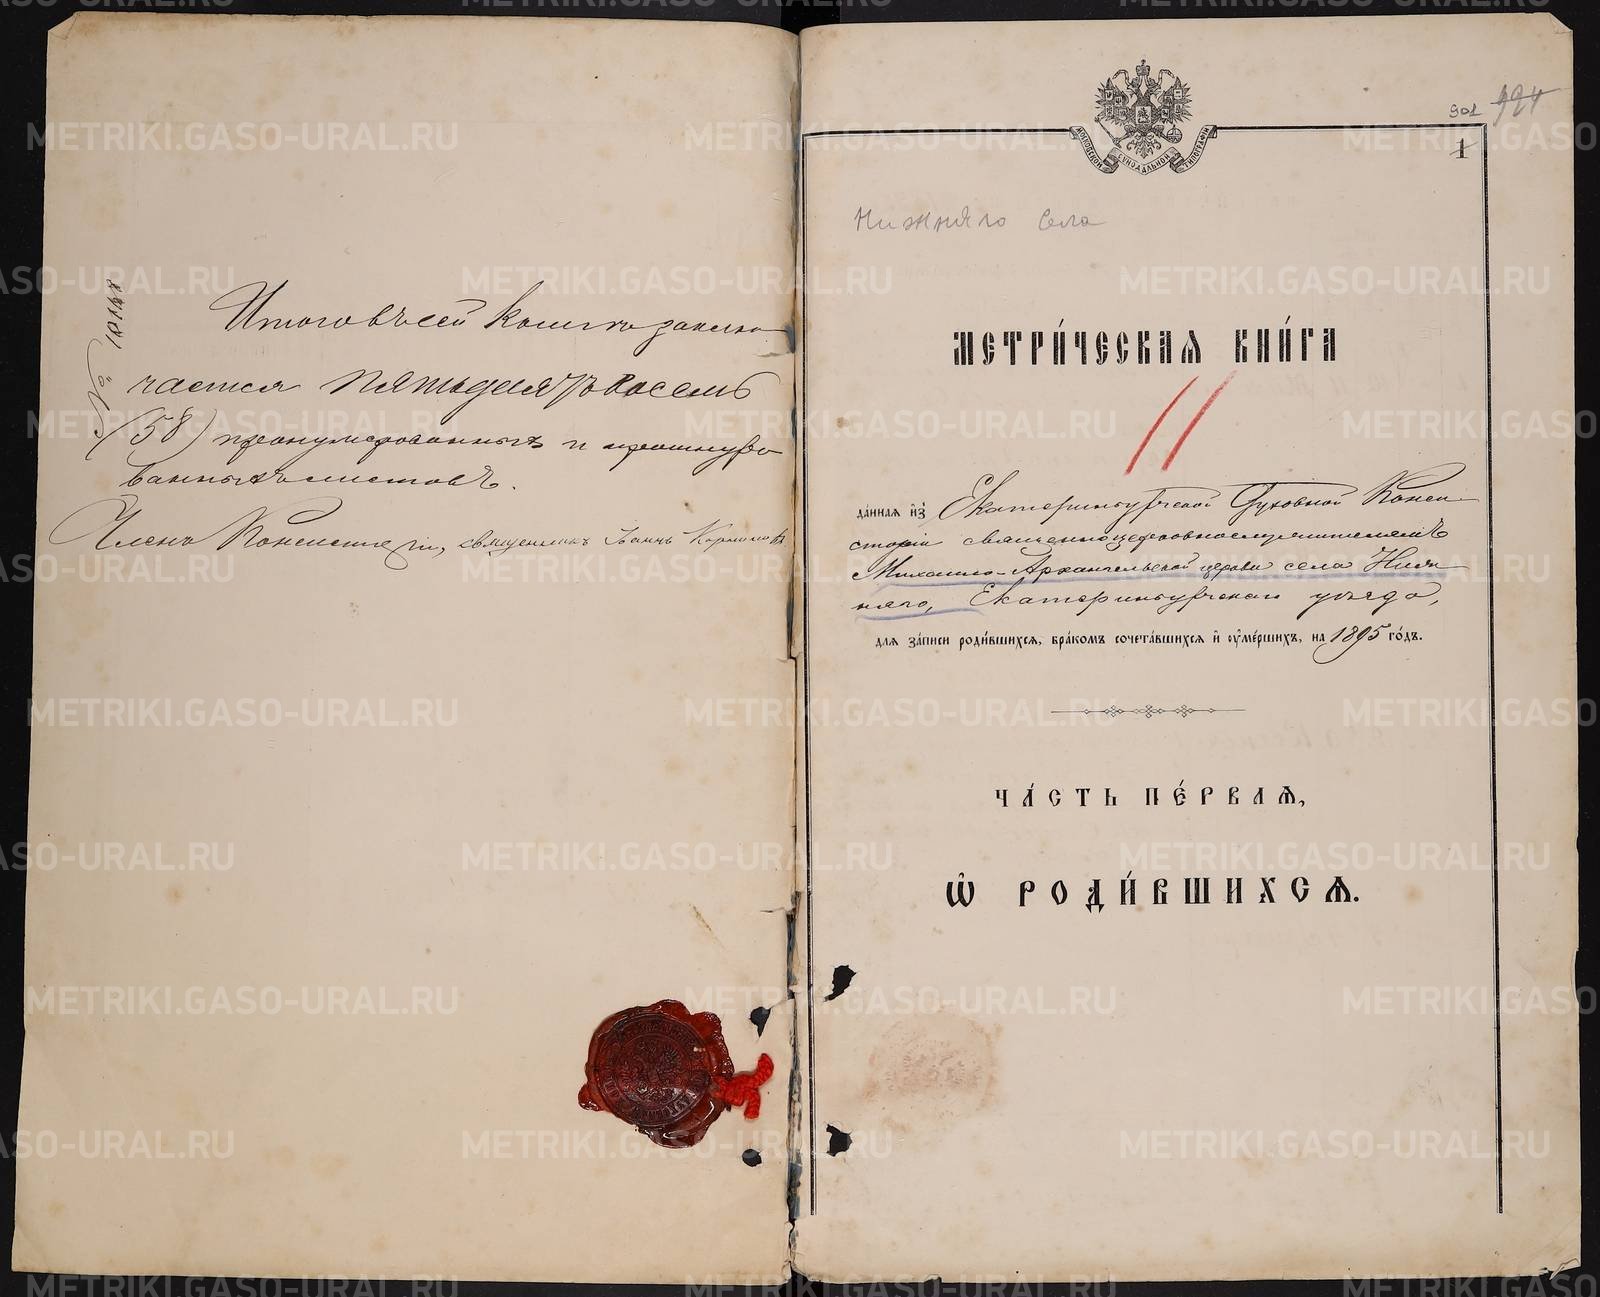 № 10148
Итого въ сей книгѣ заклю-
чается пятьдесятъ восемь
(58) пронумерованныхъ и прошнуро-
ванныхъ листовъ.
Членъ Консисторіи, священникъ Іоаннъ
901 924
1
МОСКОВСКОЙ СѴНОДАЛЬНОЙ ТИПОГРАФІИ
Нижняго села
МЕТРИ́ЧЕСКАѦ КНИ́ГА
11
да́нная и҆з̾ Екатеринбургской Духовной Конси-
сторіи священноцерковнослужителямъ
Михаило-Архангельской церкви села Ниж-
няго, Екатеринбургскаго уѣзда,
для за́писи роди́вшихсѧ, бра́комъ сочета́вшихсѧ и҆ ᲂу҆ме́ршихъ, на 1895 го́дъ.
ЧА́СТЬ ПЕ́РВАѦ,
Ѡ҆ РОДИ́ВШИХСѦ.
METRIKI.GASO-URAL.RU